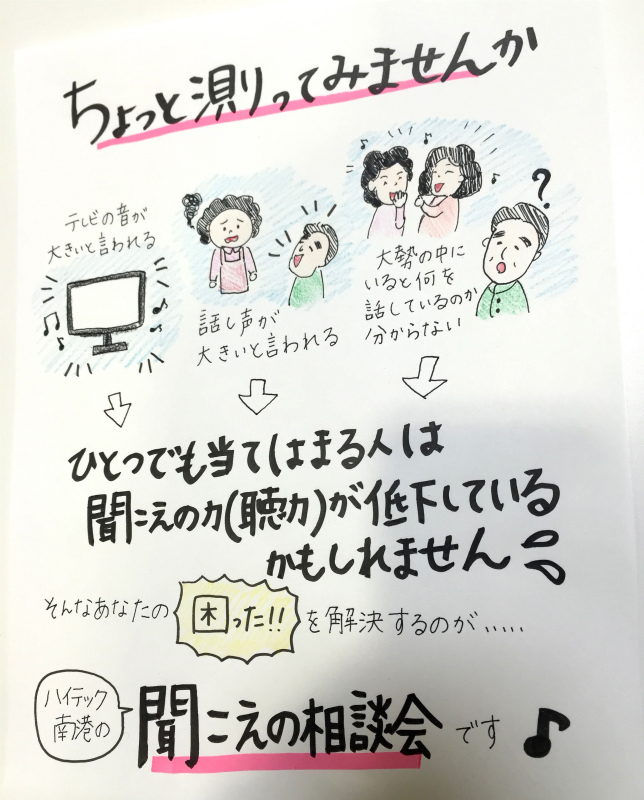 ちょっと測りってみませんか
テレビの音が
大きいと言われる
話し声が
大きいと言われる
?
大勢の中に
いると何を
話しているのか
分からない
ひとつでも当てはまる人は
聞こえの力(聴力)が低下している
かもしれません
そんなあなたの困った!!を解決するのが.....
ハイテック
南港の
聞こえの相談会です♪